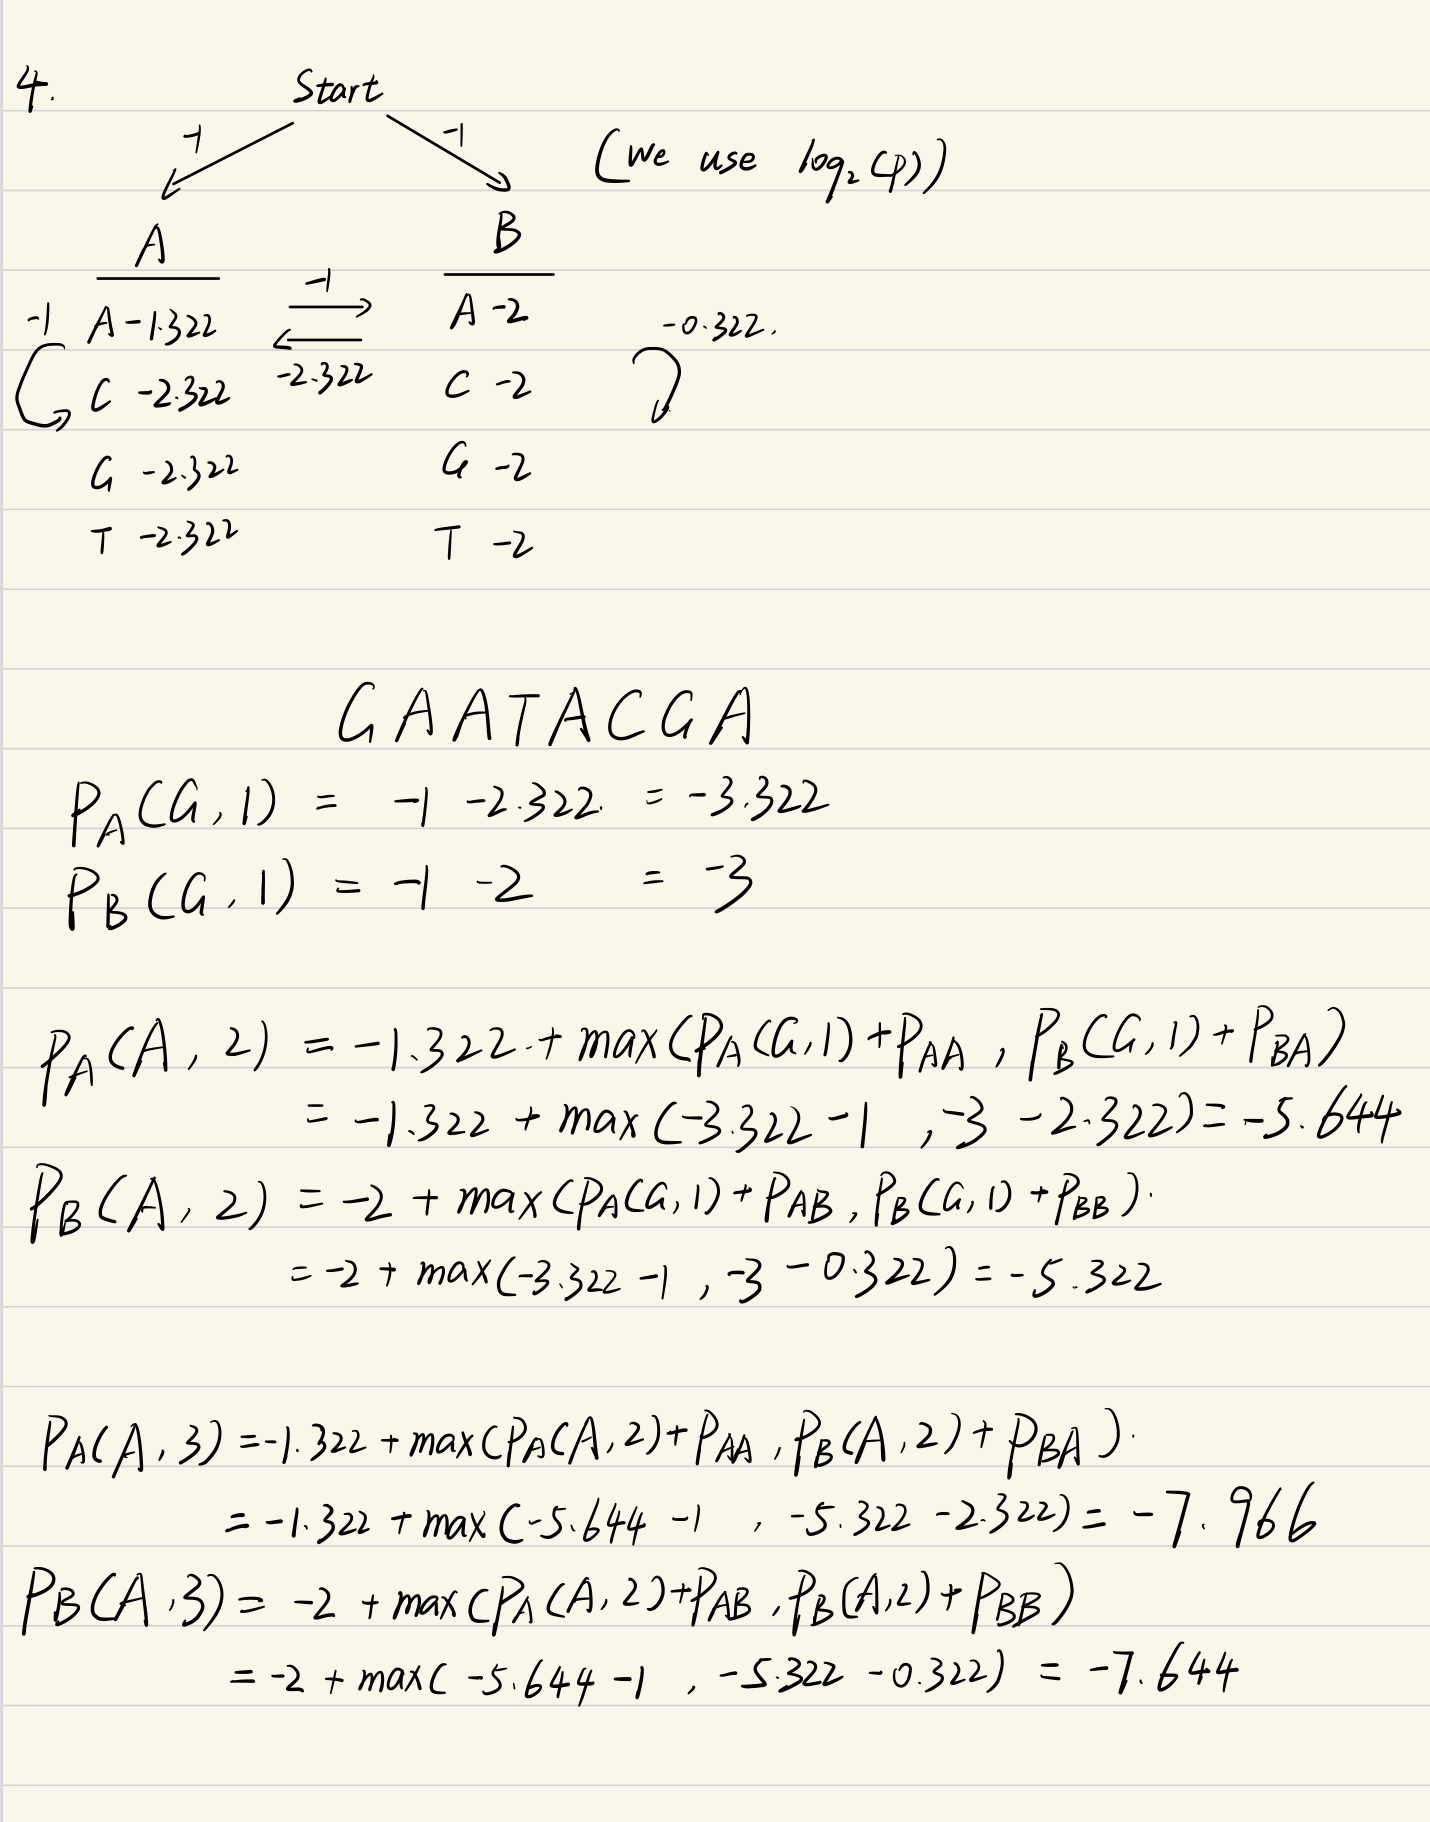 4. Start
-1 -1 (we use log₂(p))
A B
-1
-1 A -1.322 A -2 -0.322.
-2.322
C -2.322 C -2
G -2.322 G -2
T -2.322 T -2
GAATACGA
P_A(G, 1) = -1 -2.322. = -3.322
P_B(G, 1) = -1 -2 = -3
P_A(A, 2) = -1.322 + max(P_A(G,1)+P_AA, P_B(G,1)+P_BA)
= -1.322 + max(-3.322-1, -3-2.322) = -5.644
P_B(A, 2) = -2 + max(P_A(G,1)+P_AB, P_B(G,1)+P_BB).
= -2 + max(-3.322-1, -3-0.322) = -5.322
P_A(A, 3) = -1.322 + max(P_A(A,2)+P_AA, P_B(A,2)+P_BA).
= -1.322 + max(-5.644-1, -5.322-2.322) = -7.966
P_B(A, 3) = -2 + max(P_A(A,2)+P_AB, P_B(A,2)+P_BB)
= -2 + max(-5.644-1, -5.322-0.322) = -7.644